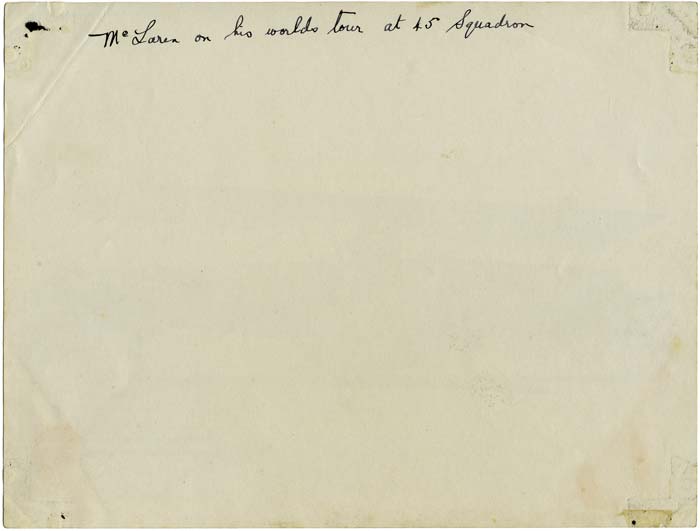 Mc Laren on his worlds tour at 45 Squadron